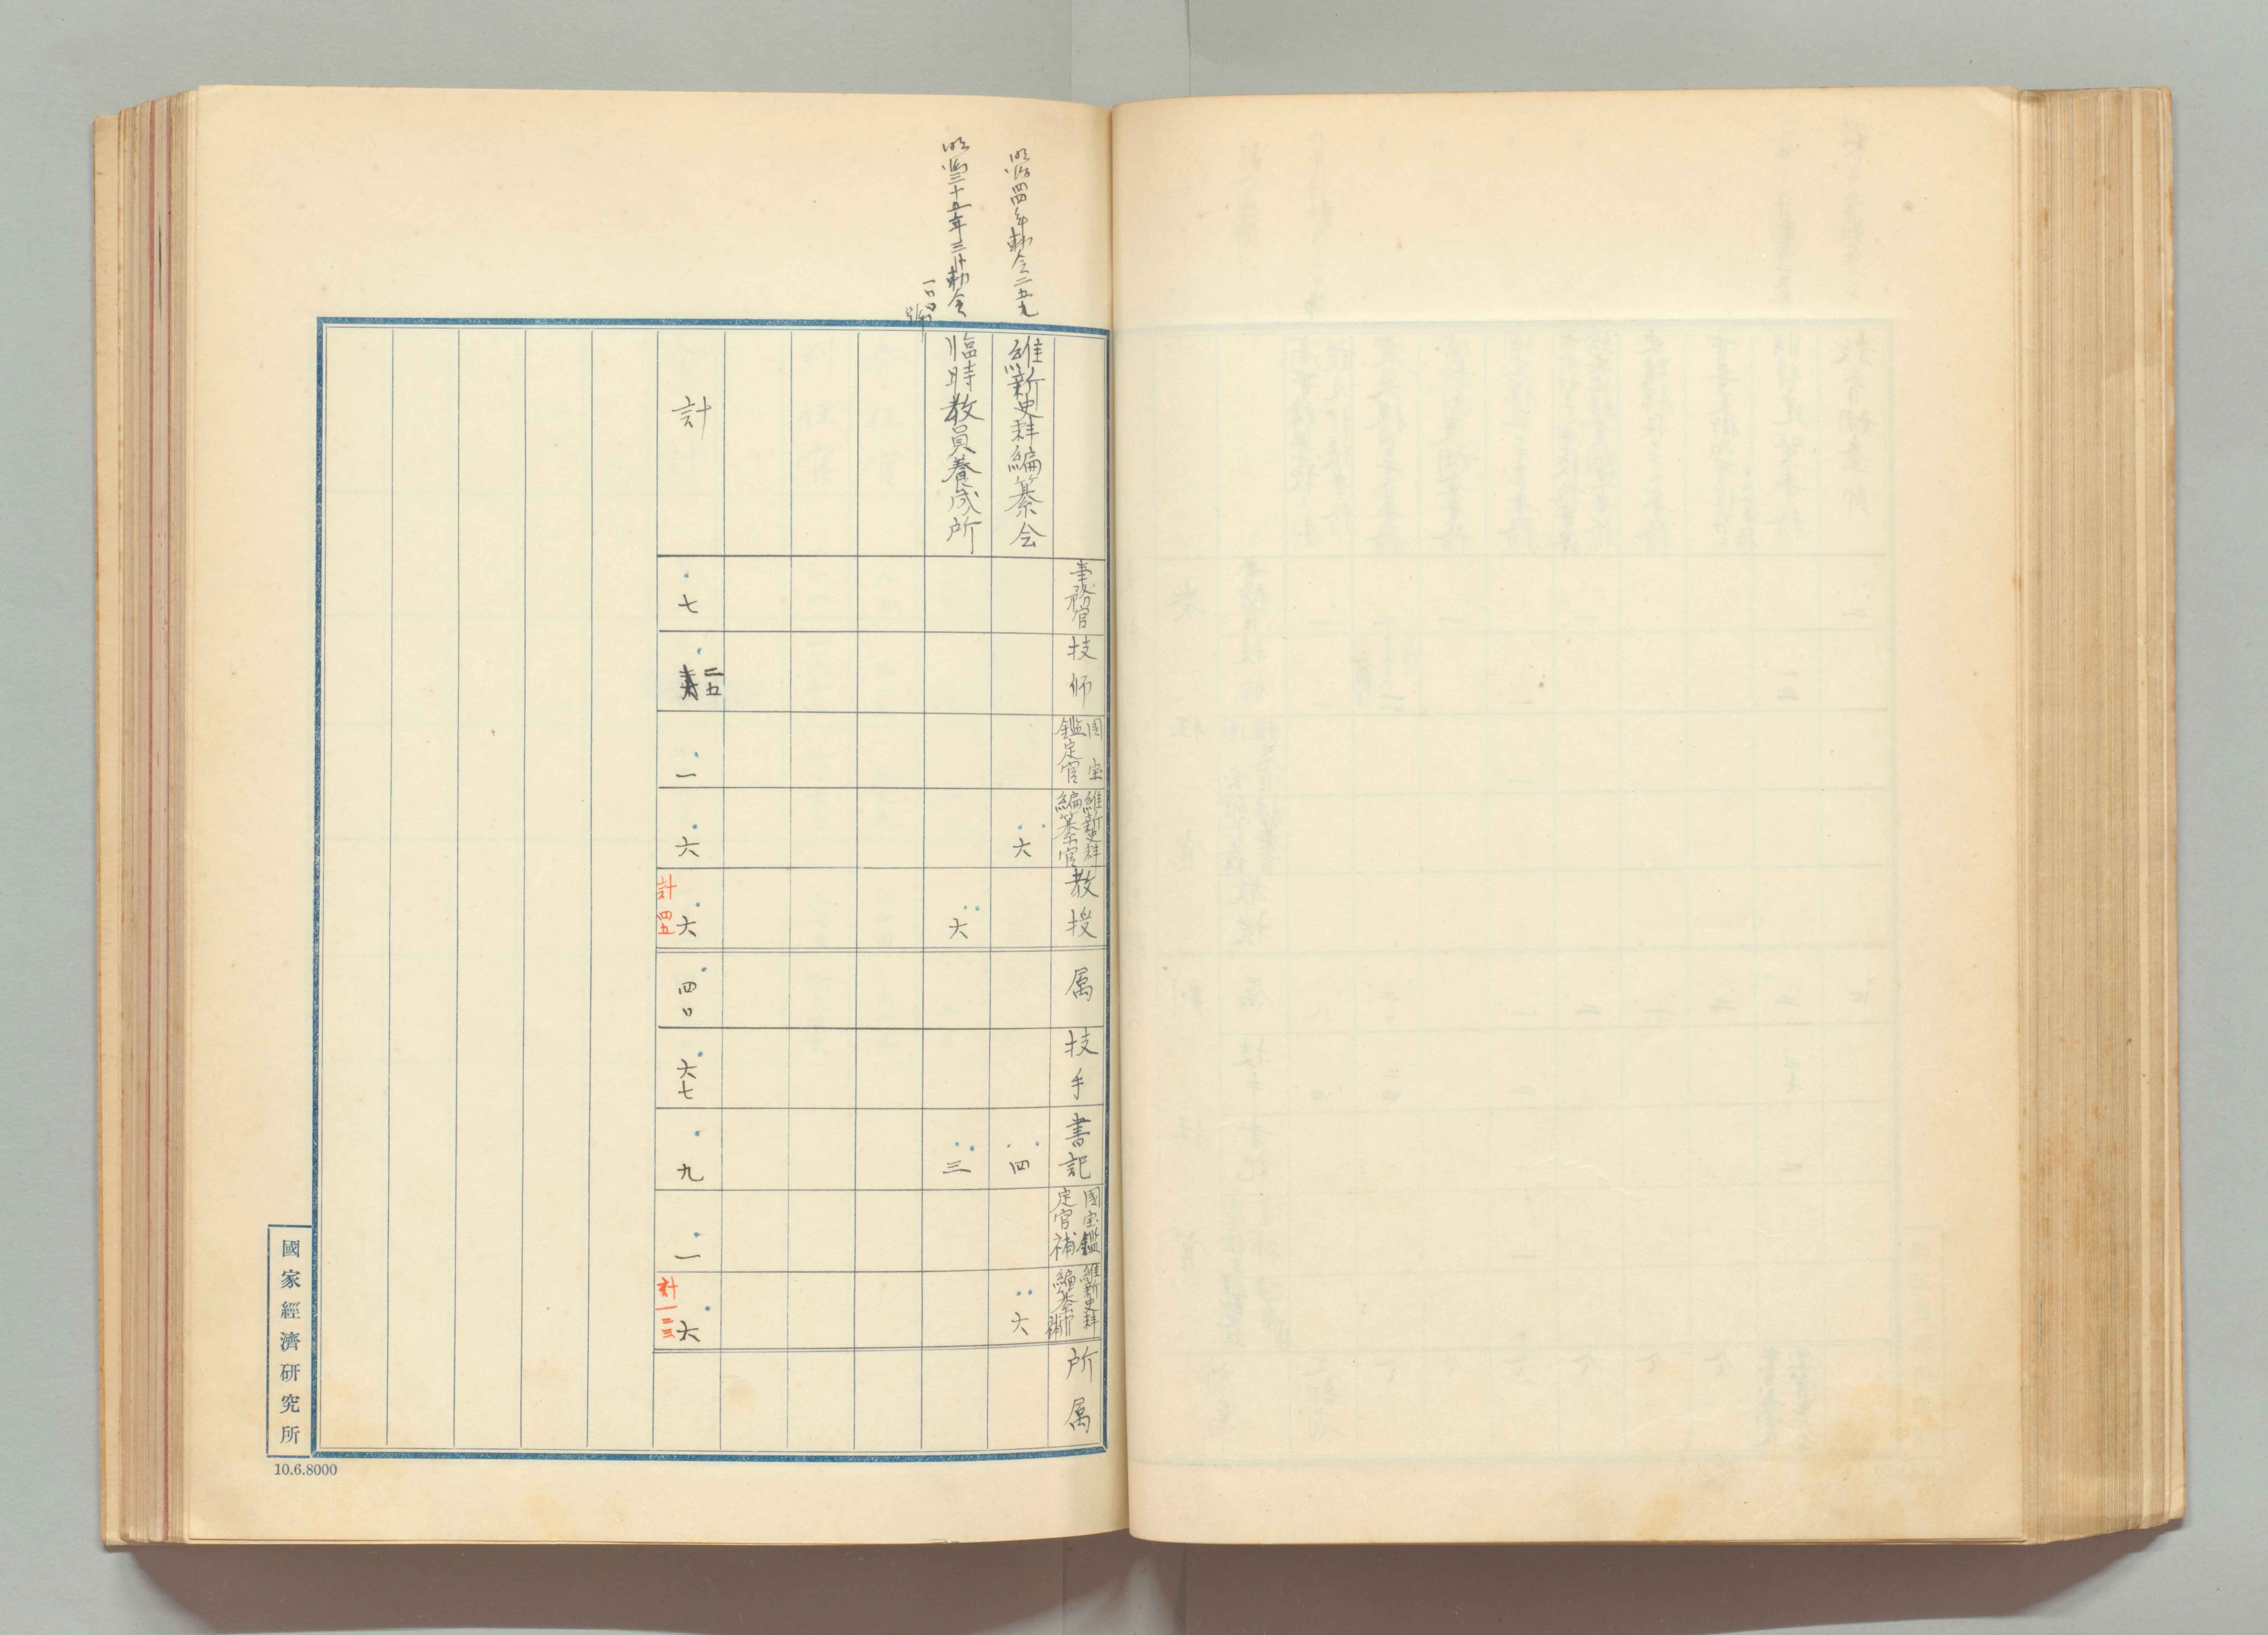 事務官
技師
国宝
鑑定官
維新史料
編纂官
教授
属
技手
書記
国宝鑑
定官補
維新史料
編纂官補
所属
明治四四年勅令二五九
維新史料編纂会
六
四
六
明治三十五年三月勅令
一〇〇号
臨時教員養成所
六
三
計
七
二五
一
六
六
四〇
六七
九
一
六
計四五
計一二三
國家經濟研究所
10.6.8000